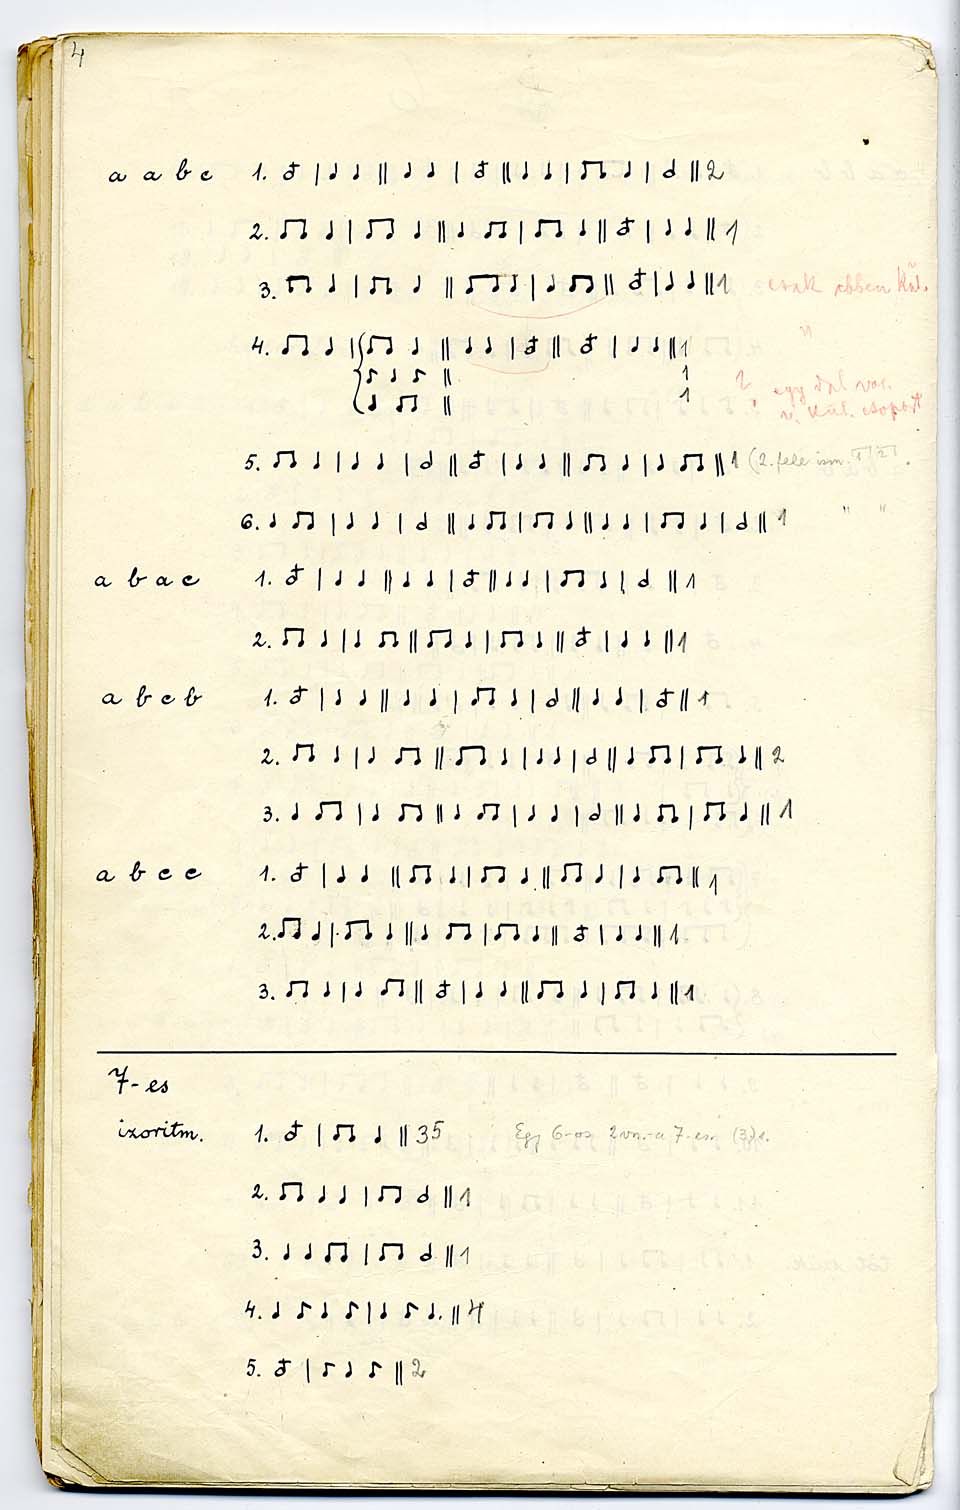 4
a a b c 1. 2
2. 1
3. 1 csak ebben kül.
4. 1 "
1
1
egy dal var.
v. kül. csoport
5. 1 (2. fele ism.
6. 1 " "
a b a c 1. 1
2. 1
a b c b 1. 1
2. 2
3. 1
a b c c 1. 1
2. 1
3. 1
7-es
izoritm. 1. 35 Egy 6-os
2. 1
3. 1
4. 4
5. 2